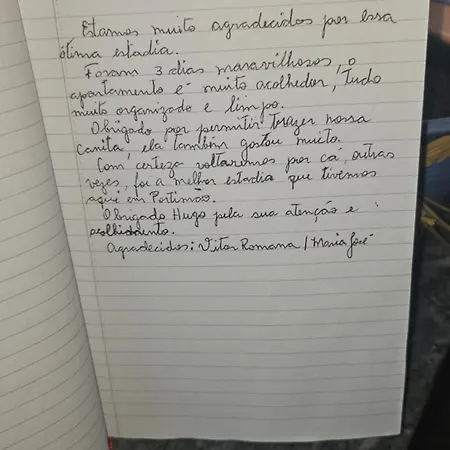 Estamos muito agradecidos por essa
ótima estadia.
Foram 3 dias maravilhosos, o
apartamento é muito acolhedor, tudo
muito organizado e limpo.
Obrigado por permitir trazer nossa
canita, ela também gostou muito.
Com certeza voltaremos por cá, outras
vezes, foi a melhor estadia que tivemos
aqui em Portimão.
Obrigado Hugo pela sua atenção e
acolhimento.
Agradecidos: Vitor Romana / Maria José